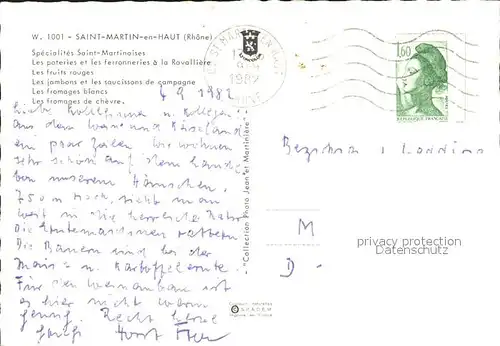 W. 1001 - SAINT-MARTIN-en-HAUT (Rhône)
Spécialités Saint-Martinoises
Les poteries et les ferronneries à la Ravallière
Les fruits rouges
Les jambons et les saucissons de campagne
Les fromages blancs
Les fromages de chèvre.
1,60
REPUBLIQUE FRANÇAISE
1982
4 9 1982
Liebe Kolleginnen u. Kollegen
aus dem Wein und Käseland
ein paar Zeilen. Wir wohnen
sehr schön auf dem Lande
Von unserem Häuschen,
750 m hoch, sieht man
weit in die herrliche Natur
Die Erntemaschinen rattern
Die Bauern sind bei der
Mais- u. Kartoffelernte.
Für den Weinanbau ist
es hier nicht warm
genug. Recht
Horst
"Collection Photo Jean et Martinière"
M
D -
privacy protection
Datenschutz